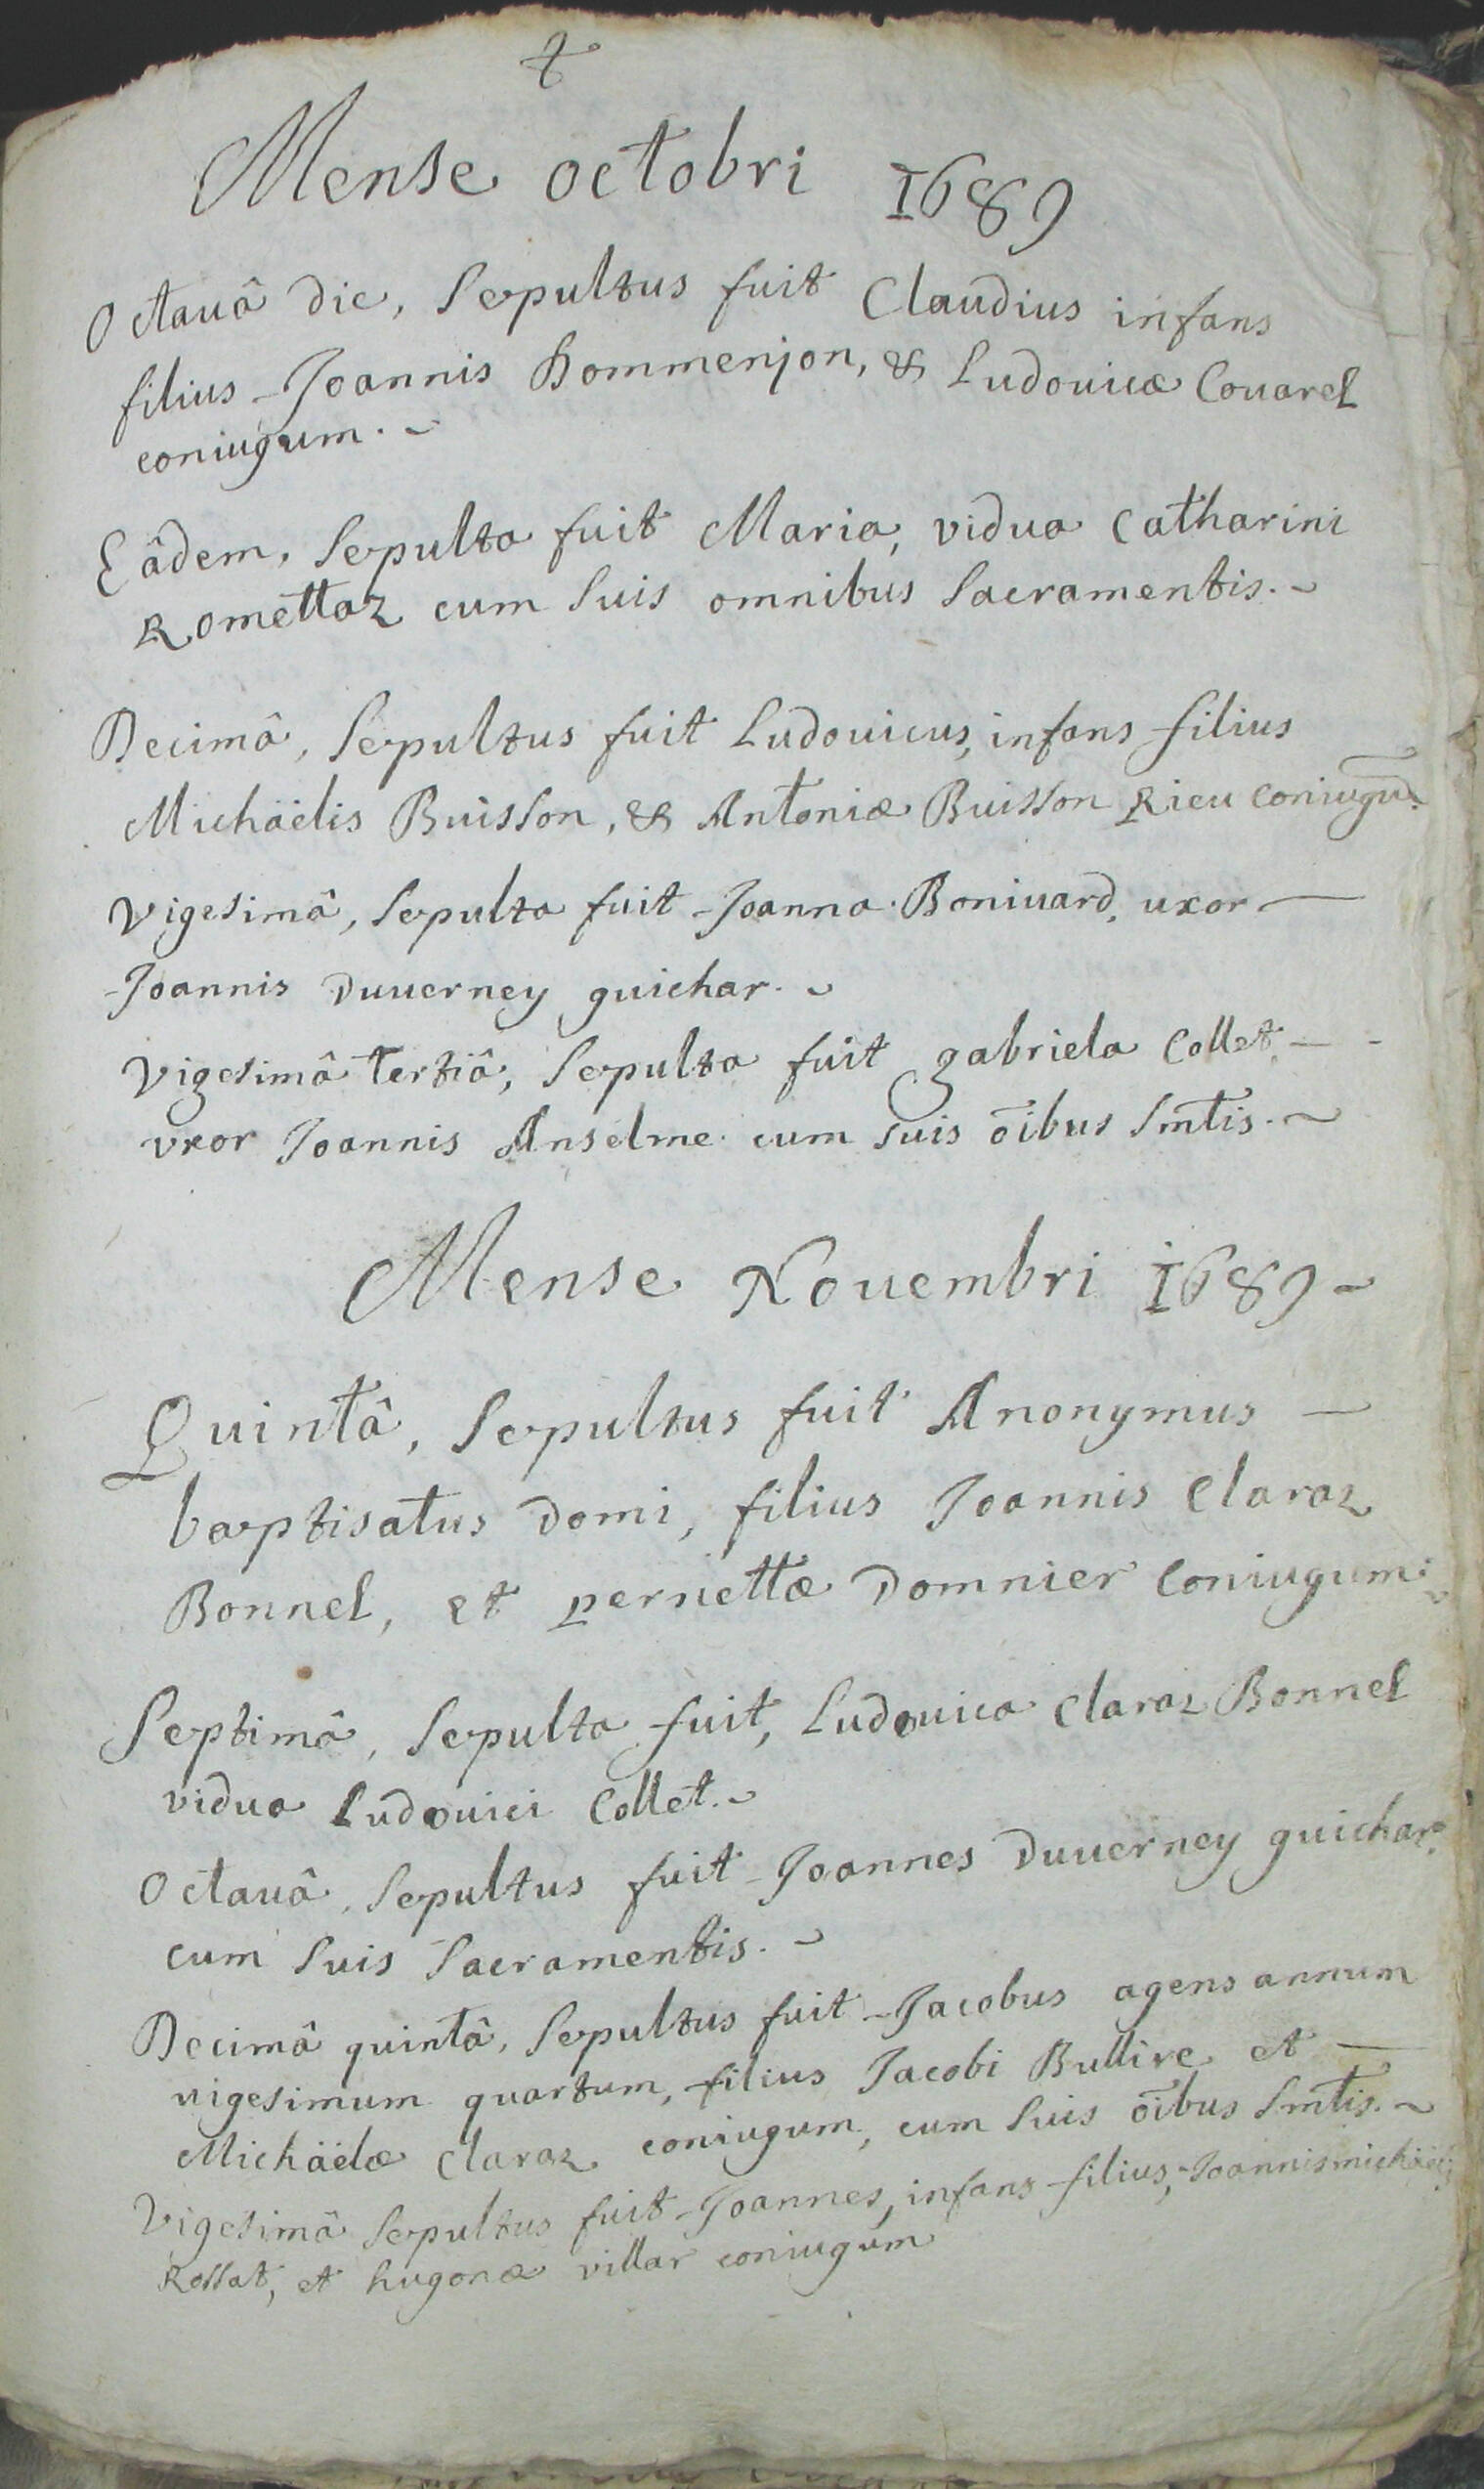 Mense octobri 1689
Octauâ die, Sepultus fuit Claudius infans
filius Joannis Dommenjon, & Ludouicæ Couarel
coniugum.
Eâdem, Sepulta fuit Maria, vidua Catharini
Romettaz cum Suis omnibus Sacramentis.
Decimâ, Sepultus fuit Ludouicus, infans filius
Michäelis Buisson, & Antoniæ Buisson Rieu coniugū.
Vigesimâ, Sepulta fuit Joanna Boniuard, uxor
Joannis Duuerney guichar.
Vigesimâ tertiâ, Sepulta fuit gabriela Collet
vxor Joannis Anselme cum suis oībus Smtis.
Mense Nouembri 1689
Quintâ, Sepultus fuit Anonymus
baptisatus domi, filius Joannis Claraz
Bonnel, et pernettæ Domnier Coniugum.
Septimâ, Sepulta fuit, Ludouica Claraz Bonnel
vidua Ludouici Collet.
Octauâ, Sepultus fuit Joannes Duuerney guichar.
cum Suis Sacramentis.
Decimâ quintâ, Sepultus fuit Jacobus agens annum
uigesimum quartum, filius Jacobi Bullire et
Michäelæ Claraz coniugum, cum Suis oībus Smtis.
Vigesimâ Sepultus fuit Joannes, infans filius, Joannis michäelis
Rossat, et hugonæ villar coniugum